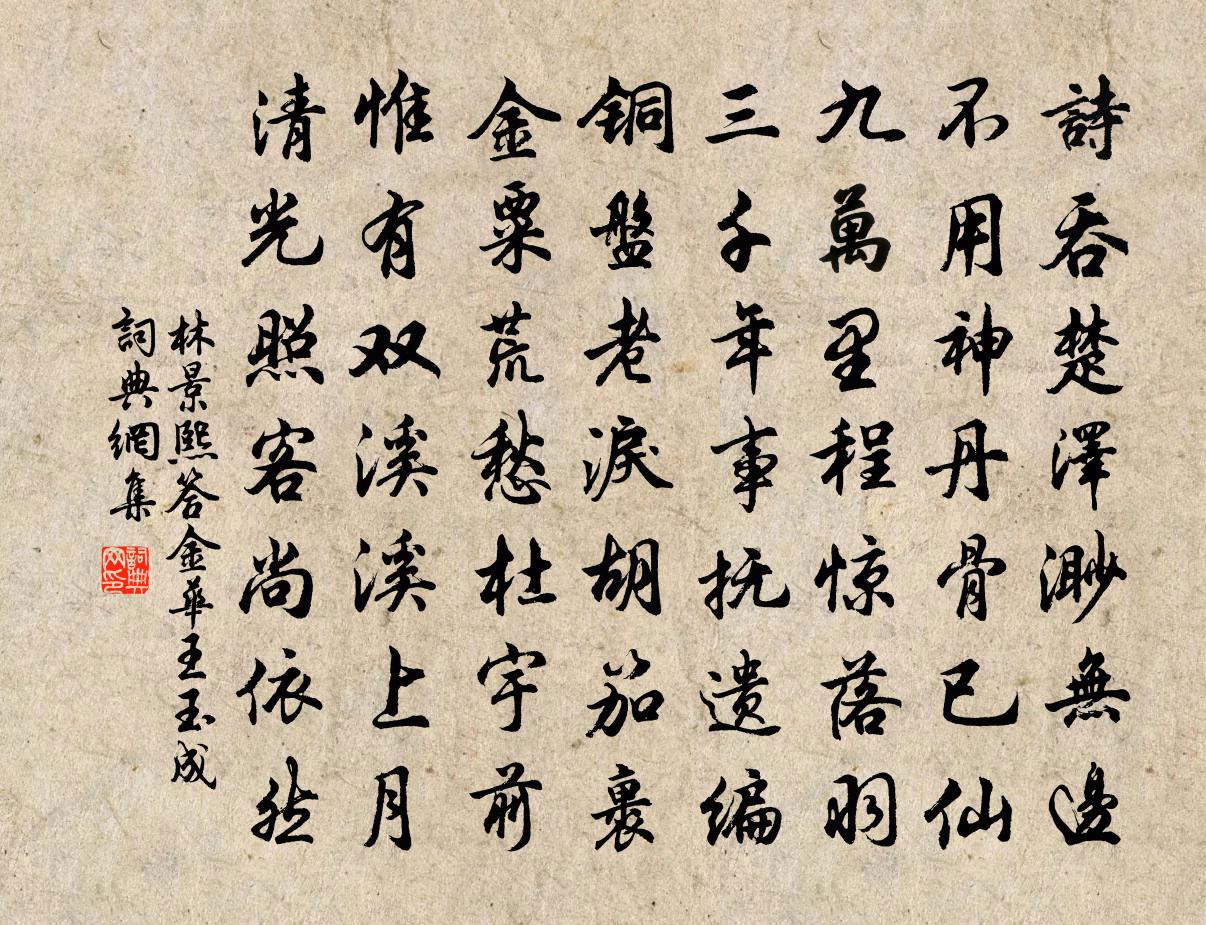 詩吞楚澤渺無邊
不用神丹骨已仙
九萬里程惊落羽
三千年事抚遗编
銅盤老淚胡笳裏
金粟荒愁杜宇前
惟有双溪溪上月
清光照客尚依然
林景熙答金華王玉成
詞典網集
詞典网印